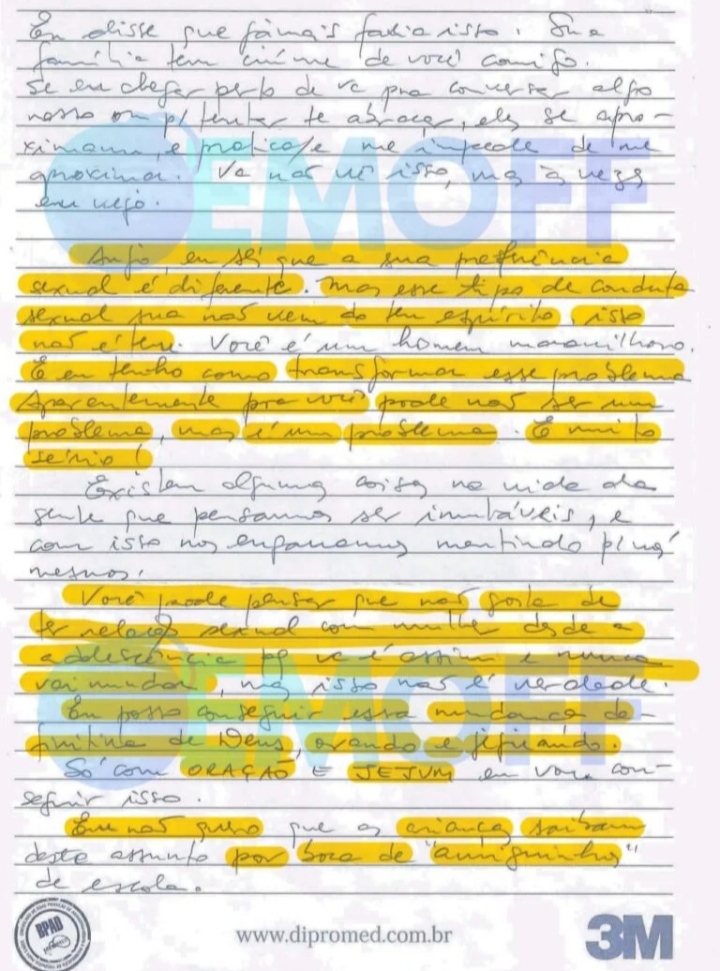 Eu disse que jamais faria isso. Sua
família tem ciúme de você comigo.
Se eu chegar perto de vc pra conversar algo
nosso ou p/ tentar te abraçar, eles se apro-
ximam, e pratica/e me impede de me
aproximar. Vc não vê isso, mas às vezes
eu vejo.
Anjo, eu sei que a sua preferência
sexual é diferente. Mas esse tipo de conduta
sexual sua não vem do teu espírito, isso
não é teu. Você é um homem maravilhoso.
E eu tenho como transformar esse problema
Aparentemente pra você pode não ser um
problema, mas é um problema. É muito
sério!
Existem algumas coisas na vida da
gente que pensamos ser imutáveis, e
com isso nos enganamos mentindo p/ nós
mesmos.
Você pode pensar que não gosta de
ter relação sexual com mulher desde a
adolescência pq vc é assim e nunca
vai mudar, mas isso não é verdade.
Eu posso conseguir essa mudança de-
finitiva de Deus, orando e jejuando.
Só com ORAÇÃO E JEJUM eu vou con-
seguir isso.
Eu não quero que as crianças saibam
deste assunto por boca de "amiguinhos"
de escola.
EMOFF
EMOFF
BPAD
www.dipromed.com.br
3M